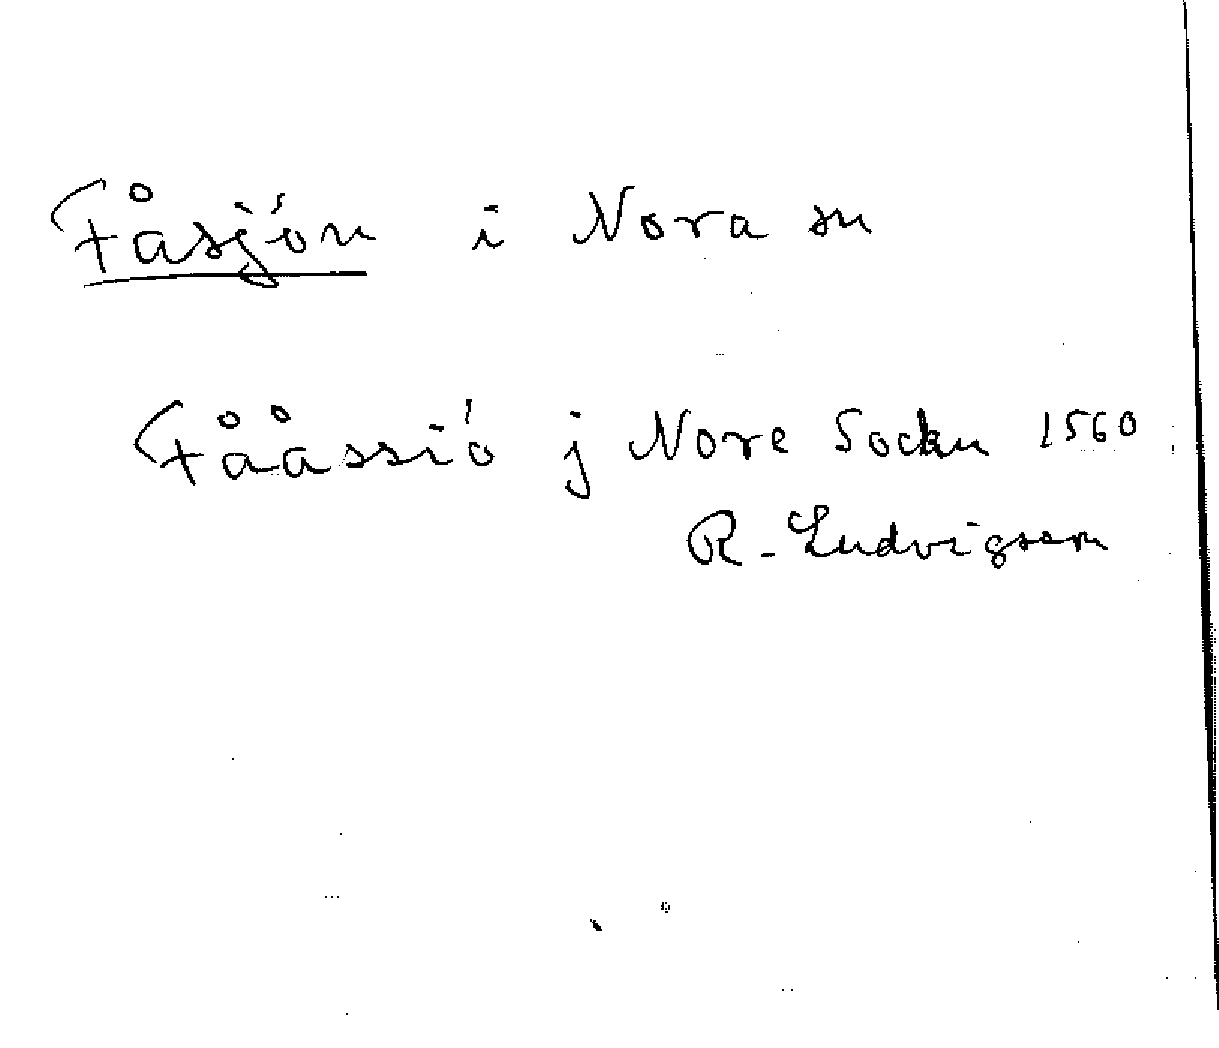 Fåsjön i Nora sn
Fååssiö j Nore Sockn 1560
R. Ludvigsson